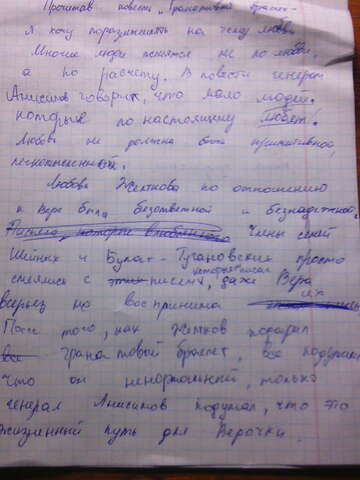 Прочитав повесть "Гранатовый браслет"
я хочу поразмышлять на тему любви.
Многие люди женятся не по любви,
а по расчету. В повести генерал
Аносиков говорил, что мало людей,
которые по настоящему любят.
Любовь не должна быть примитивной,
легкомысленной.
Любовь Желткова по отношению
к Вере была безответной и безнадежной.
Письма, которые Члены семей
Шейных и Булат-Тугановских просто
смеялись с этих писем, которые писал даже Вера
всерьез не воспринима их
После того, как Желтков подарил
все гранатовый браслет, все подумали
что он ненормальный, только
генерал Анисимов подумал, что это
жизненный путь для Верочки.